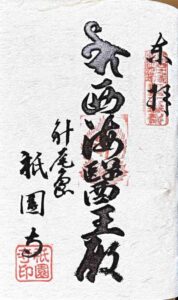 奉拝
西海醫王殿
針尾島
祇園寺
祇園寺印